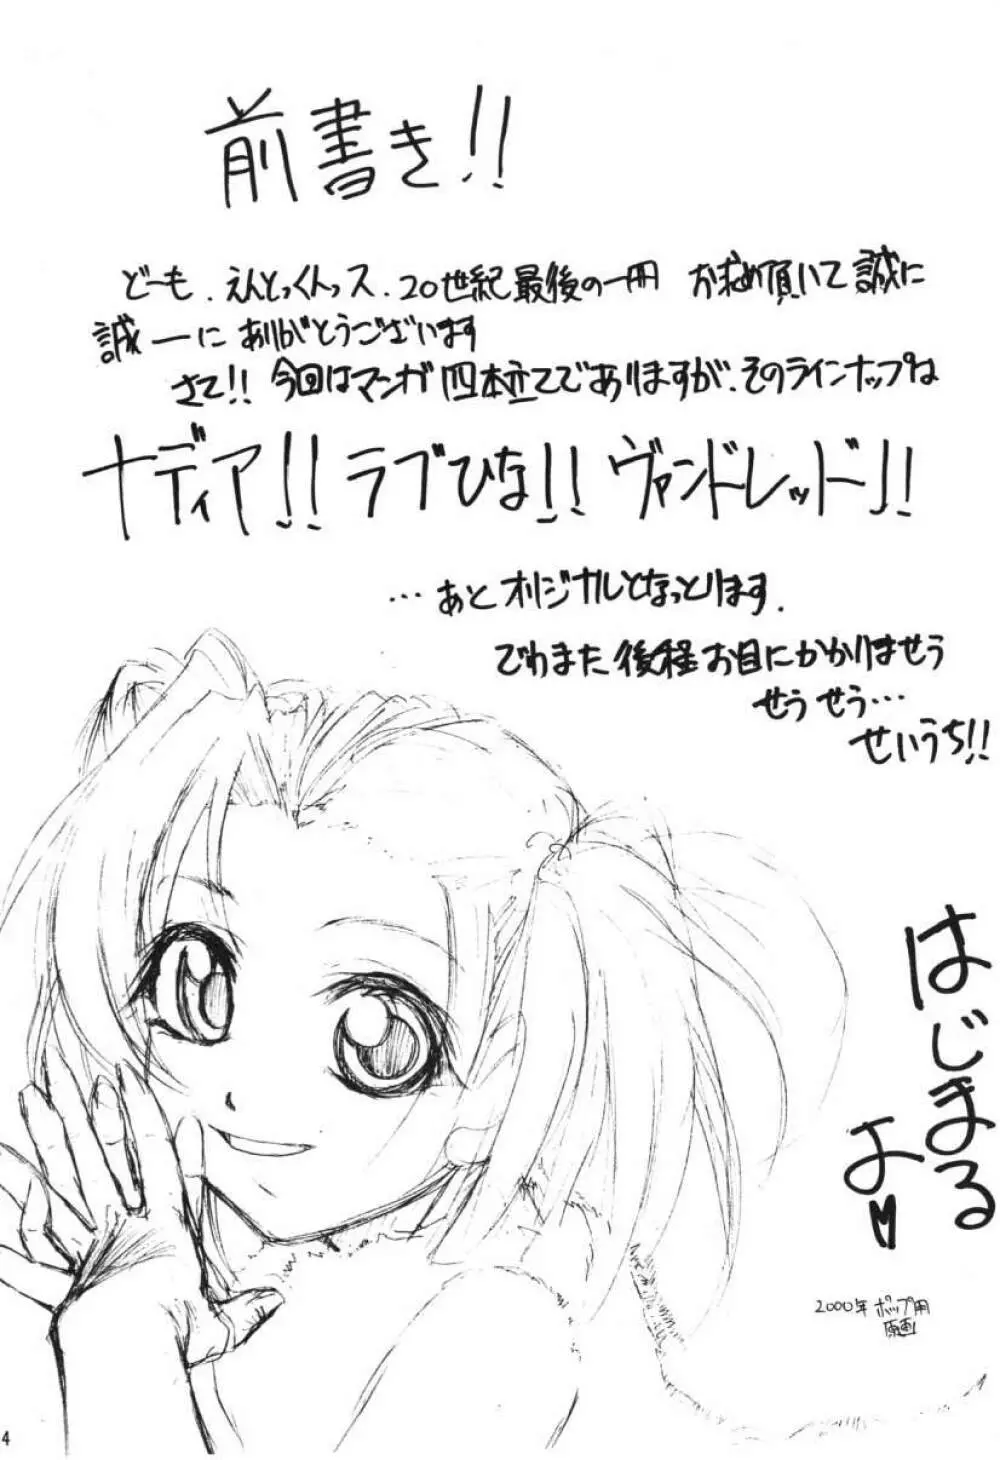 前書き!!
どーも、えんとっくんっス、20世紀最後の一冊 お求め頂いて誠に
誠ーに ありがとうございます
さて!! 今回はマンガ四本立てでありますが、そのラインナップは
ナディア!! ラブひな!! ヴァンドレッド!!
…あとオリジナルとなっとります。
でわまた後程お目にかかりませう
せう せう…
せいうち!!
はじまる
よ♥
2000年 ポップ用
原画
4